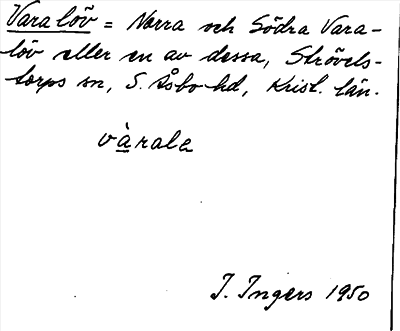 Varalöv = Norra och Södra Vara-
löv eller en av dessa, Strövels-
torps sn, S. Åsbo hd, Krist. län.
vàrala
I. Ingers 1950